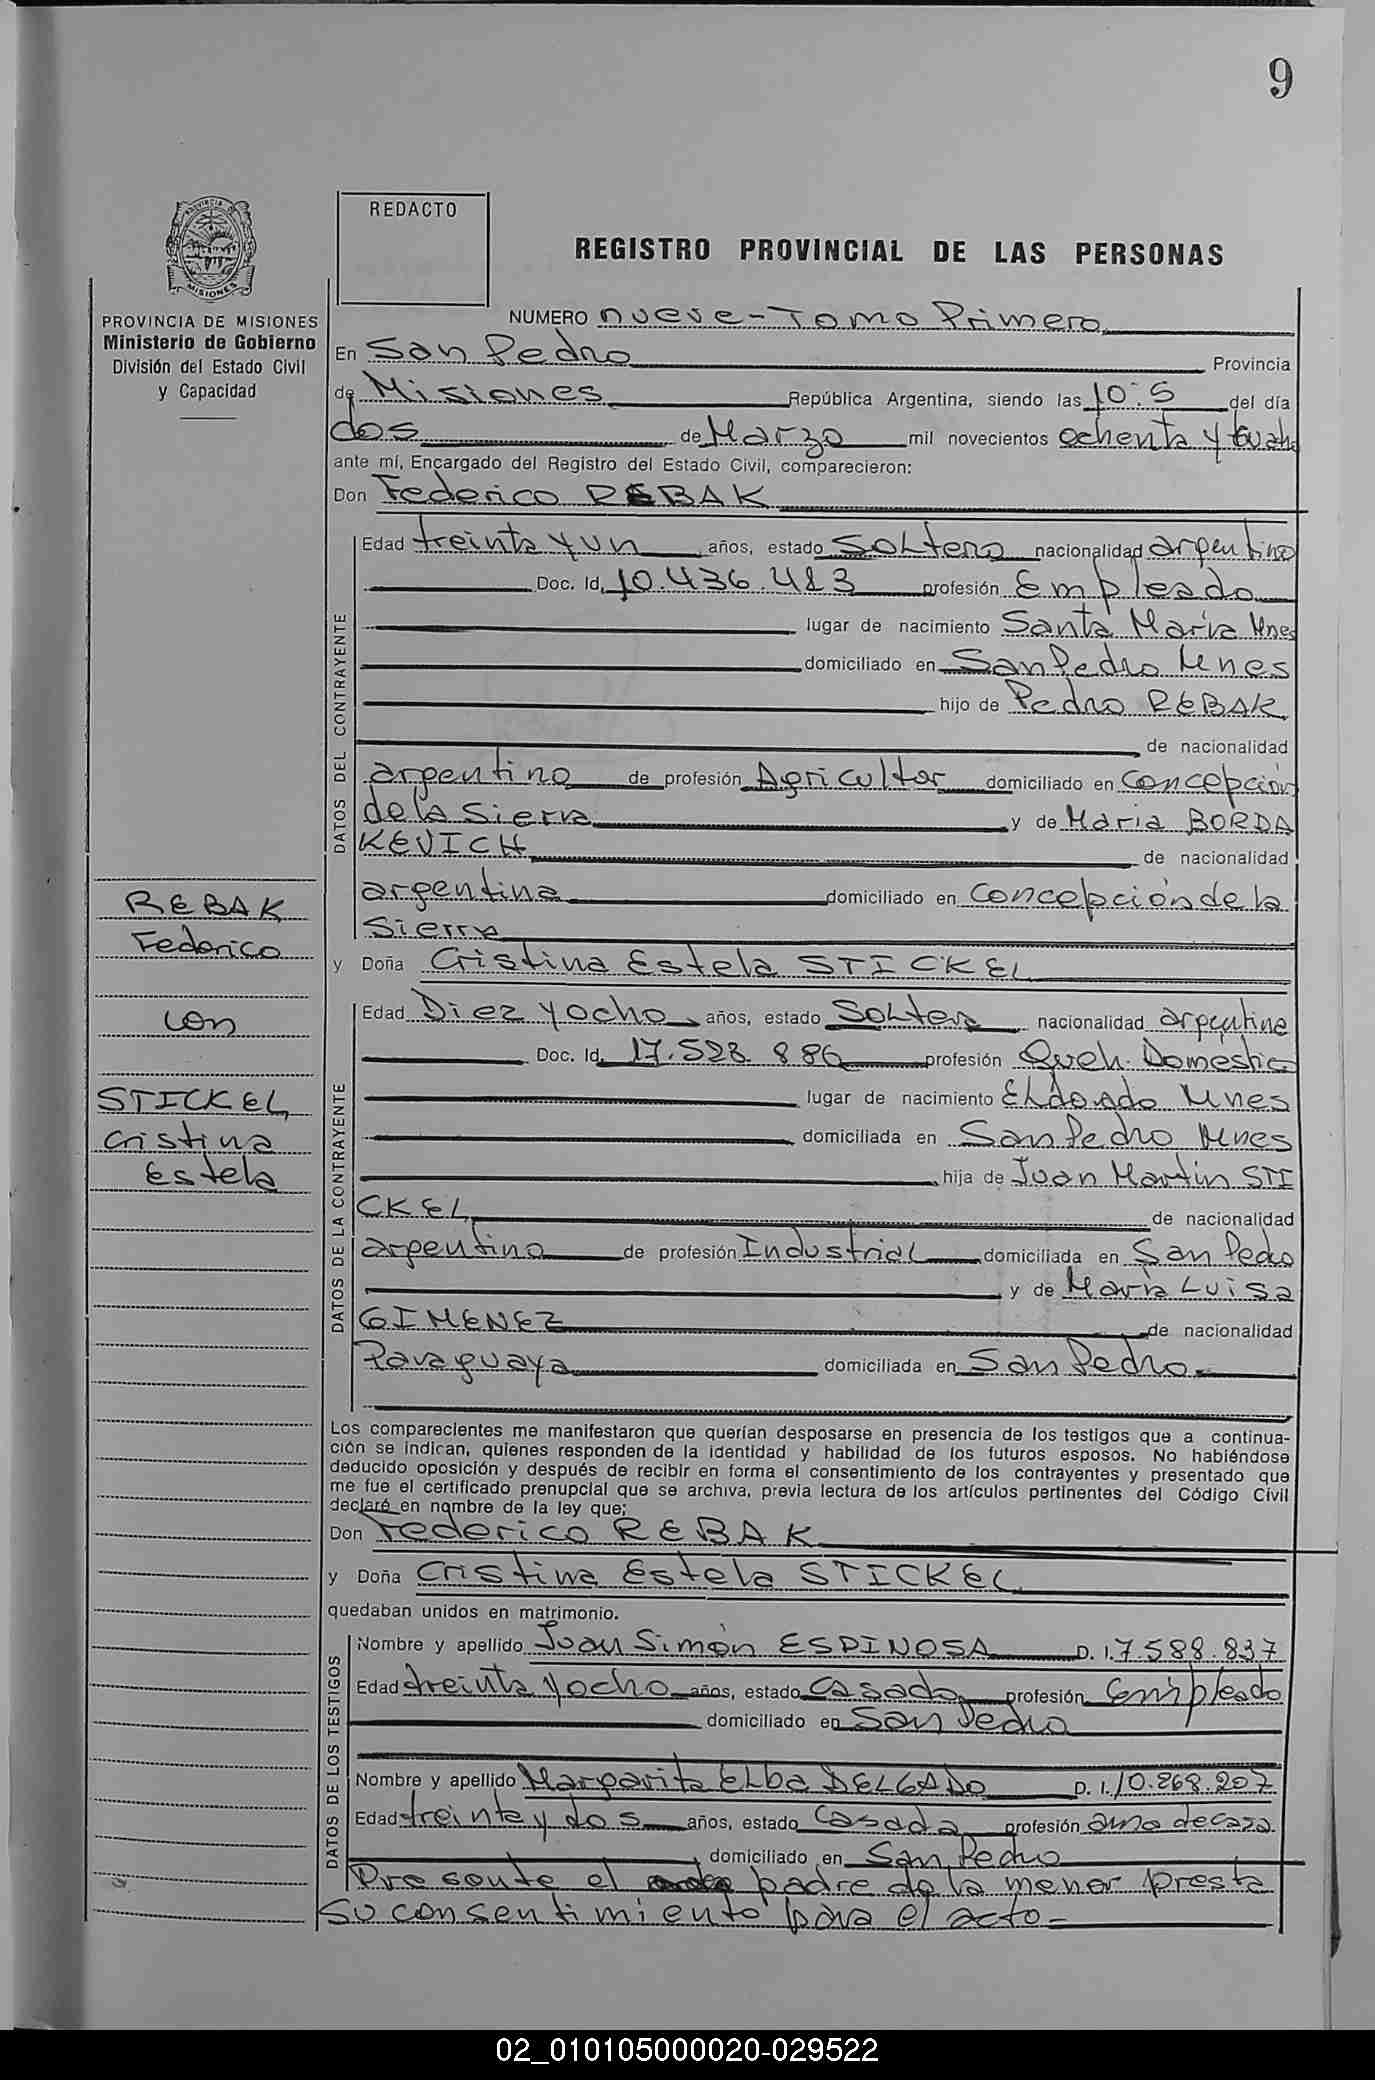 9
PROVINCIA DE
MISIONES
REDACTO
REGISTRO PROVINCIAL DE LAS PERSONAS
PROVINCIA DE MISIONES
Ministerio de Gobierno
División del Estado Civil
y Capacidad
NUMERO nueve-Tomo Primero
En San Pedro Provincia
de Misiones República Argentina, siendo las 10:5 del día
dos de Marzo mil novecientos ochenta y cuatro
ante mí, Encargado del Registro del Estado Civil, comparecieron:
Don Federico REBAK
DATOS DEL CONTRAYENTE
Edad treinta y un años, estado Soltero nacionalidad argentino
Doc. Id. 10.436.413 profesión Empleado
lugar de nacimiento Santa María Mnes
domiciliado en San Pedro Mnes
hijo de Pedro REBAK
de nacionalidad
argentino de profesión Agricultor domiciliado en Concepción
de la Sierra y de Maria BORDA
KEVICH de nacionalidad
argentina domiciliado en Concepción de la
Sierra
REBAK
Federico
con
STICKEL
Cristina
Estela
y Doña Cristina Estela STICKEL
DATOS DE LA CONTRAYENTE
Edad Diez y ocho años, estado Soltera nacionalidad argentina
Doc. Id. 17.528.886 profesión Queh. Domestico
lugar de nacimiento Eldorado Mnes
domiciliada en San Pedro Mnes
hija de Juan Martin STI
CKEL de nacionalidad
argentino de profesión Industrial domiciliada en San Pedro
y de María Luisa
GIMENEZ de nacionalidad
Paraguaya domiciliada en San Pedro
Los comparecientes me manifestaron que querían desposarse en presencia de los testigos que a continua-
ción se indican, quienes responden de la identidad y habilidad de los futuros esposos. No habiéndose
deducido oposición y después de recibir en forma el consentimiento de los contrayentes y presentado que
me fue el certificado prenupcial que se archiva, previa lectura de los artículos pertinentes del Código Civil
declaré en nombre de la ley que;
Don Federico REBAK
y Doña Cristina Estela STICKEL
quedaban unidos en matrimonio.
DATOS DE LOS TESTIGOS
Nombre y apellido Juan Simón ESPINOSA D. I. 7.588.837
Edad treinta y ocho años, estado Casado profesión Empleado
domiciliado en San Pedro
Nombre y apellido Margarita Elba DELGADO D. I. 10.868.207
Edad treinta y dos años, estado Casada profesión ama de casa
domiciliado en San Pedro
Presente el padre de la menor presta
su consentimiento para el acto-
02_010105000020-029522